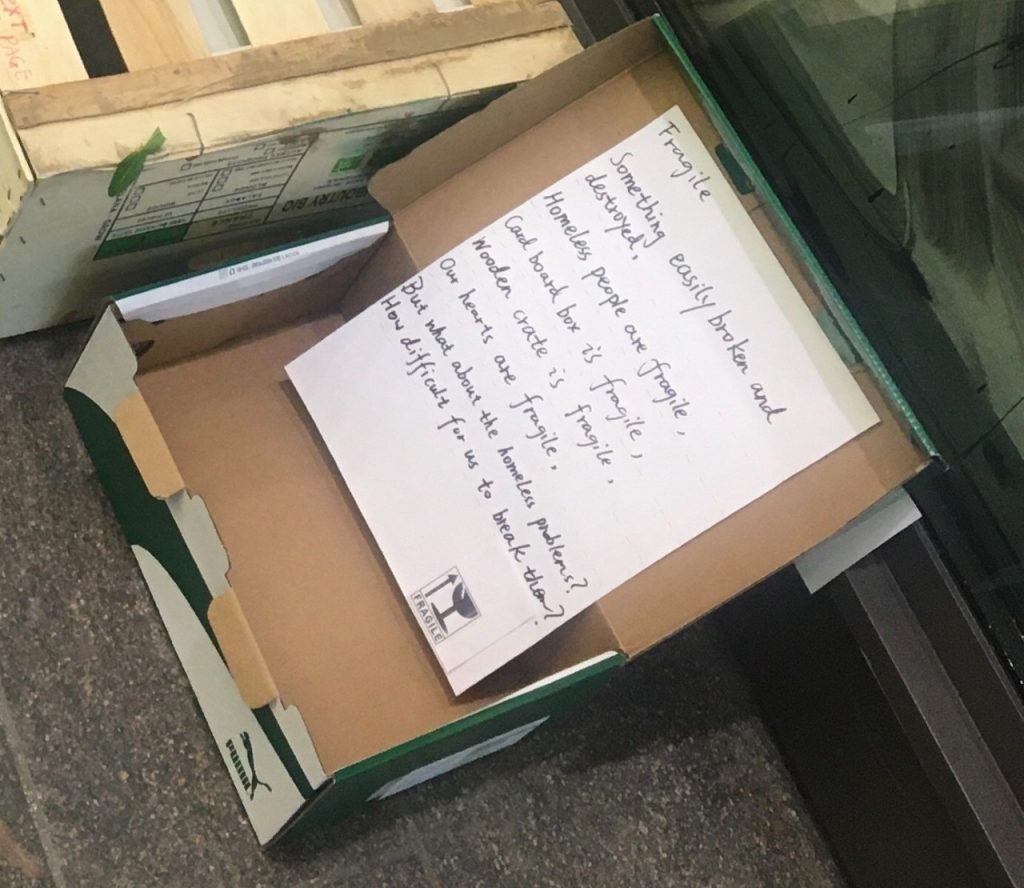 EXT PAGE
Fragile
Something easily broken and
destroyed,
Homeless people are fragile,
Card board box is fragile,
Wooden crate is fragile,
Our hearts are fragile,
But what about the homeless problems?
How difficult for us to break them?
FRAGILE
PUMA